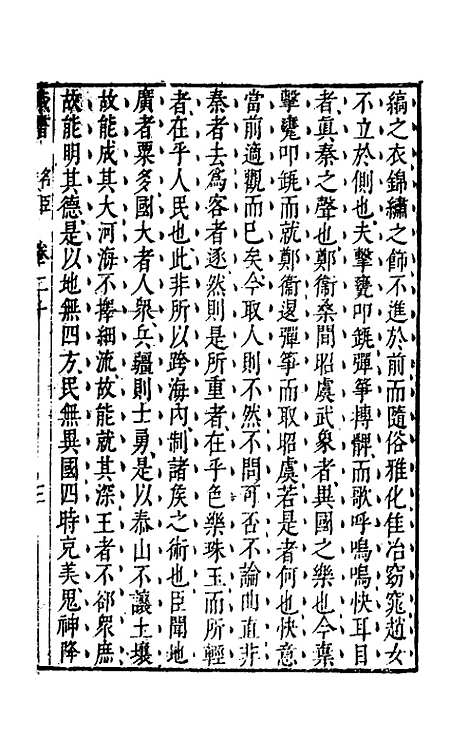 縞之衣錦繡之飾不進於前而隨俗雅化佳冶窈窕趙女
不立於側也夫擊甕叩缻彈箏搏髀而歌呼嗚嗚快耳目
者真秦之聲也鄭衛桑間昭虞武象者異國之樂也今棄
擊甕叩缻而就鄭衛退彈箏而取昭虞若是者何也快意
當前適觀而已矣今取人則不然不問可否不論曲直非
秦者去為客者逐然則是所重者在乎色樂珠玉而所輕
者在乎人民也此非所以跨海內制諸矦之術也臣聞地
廣者粟多國大者人衆兵彊則士勇是以泰山不讓土壤
故能成其大河海不擇細流故能就其深王者不卻衆庶
故能明其德是以地無四方民無異國四時克美鬼神降
名臣 卷二十